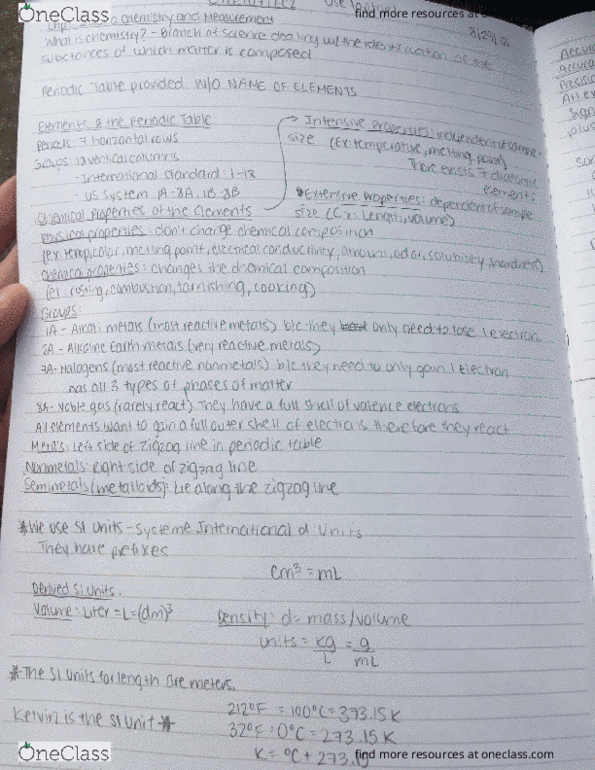 OneClass
find more resources at oneclass.com
Chemistry and Measurement
8/29/18
What is chemistry? - Branch of science dealing w/ the identification of the
substances of which matter is composed
Periodic Table provided W/O NAME OF ELEMENTS
Elements & the Periodic Table
Periods: 7 horizontal rows
Groups: 18 vertical columns
- International Standard: 1-18
- US System 1A-8A, 1B-8B
→ Intensive Properties: independent of sample
size (Ex: temperature, melting point)
There exists 7 diatomic
elements
Extensive Properties: dependent of sample
size (Ex: Length, volume)
Chemical Properties of the Elements
Physical properties: don't change chemical composition
(ex: temp, color, melting point, electrical conductivity, amount, odor, solubility, hardness)
Chemical properties: changes the chemical composition
(ex: rusting, combustion, tarnishing, cooking)
Groups:
1A - Alkali metals (most reactive metals) b/c they only need to lose 1 electron
2A - Alkaline Earth metals (very reactive metals)
7A - Halogens (most reactive nonmetals) b/c they need to only gain 1 electron
has all 3 types of phases of matter
8A - Noble gas (rarely react) They have a full shell of valence electrons
All elements want to gain a full outer shell of electrons therefore they react
Metals: left side of zigzag line in periodic table
Nonmetals: right side of zigzag line
Semimetals (metalloids): lie along the zigzag line
*We use SI Units - Systeme International d Units
They have prefixes
cm³ = mL
Derived SI Units:
Volume: Liter = L = (dm)³
Density: d = mass/volume
units = kg/L = g/mL
*The SI Units for length are meters.
Kelvin is the SI Unit *
212°F = 100°C = 373.15 K
32°F = 0°C = 273.15 K
K = °C + 273.15
OneClass
find more resources at oneclass.com